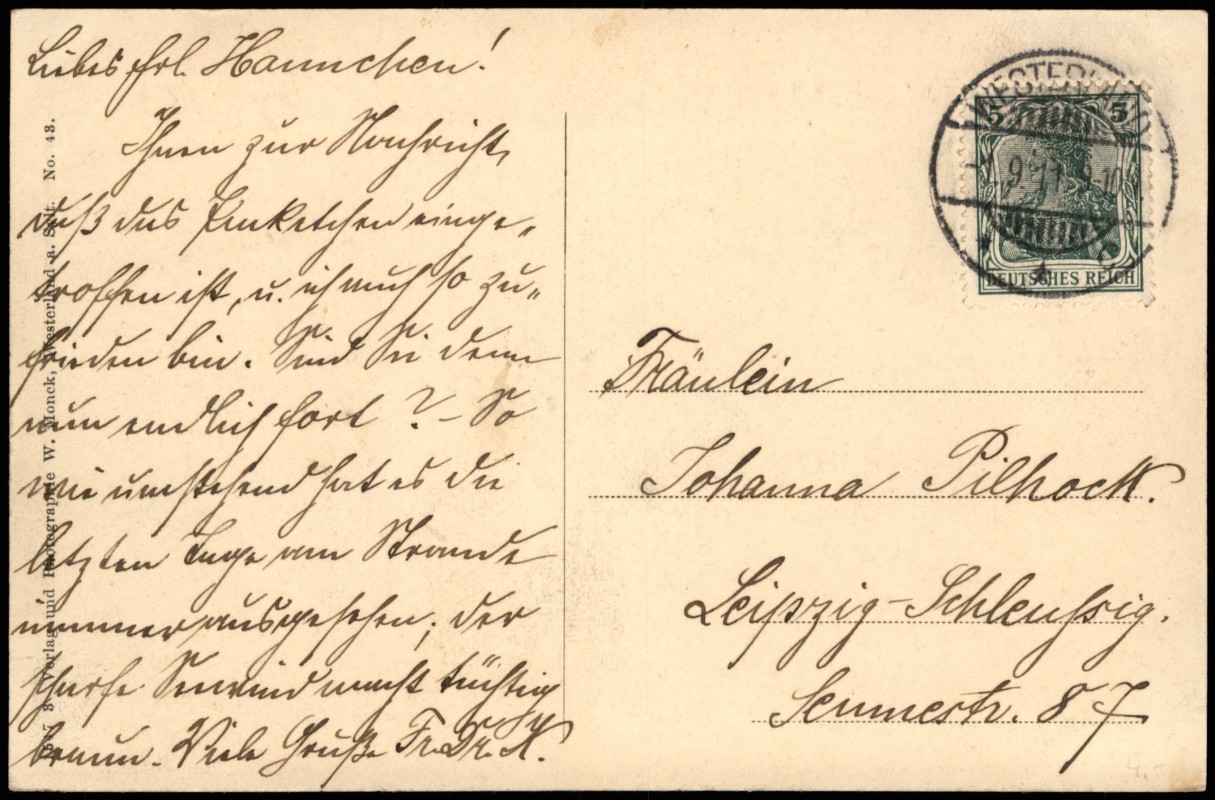 Liebes Frl. Hannchen!
Ihnen zur Nachricht,
daß das Paketchen einge„
troffen ist, u. ich auch so zu„
frieden bin. Sind Sie denn
nun endlich fort? – So
wie umstehend hat es die
letzten Tage am Strande
immer ausgesehen; der
scharfe Seewind macht tüchtig
braun. Viele Grüße Fr. Dr. H.
Verlag und Photographie W. Monck, Westerland a. Sylt. No. 43.
WESTERLAND
9 11 9-10
5 5
DEUTSCHES REICH
Fräulein
Johanna Pilhock.
Leipzig-Schleußig.
Sennestr. 87
4.-